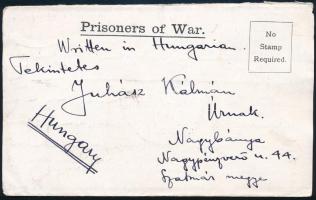 Prisoners of War.
No
Stamp
Required.
Written in Hungarian.
Tekintetes
Juhász Kálmán
Úrnak.
Hungary
Nagybánya
Nagypénzverő u. 44.
Szatmár megye